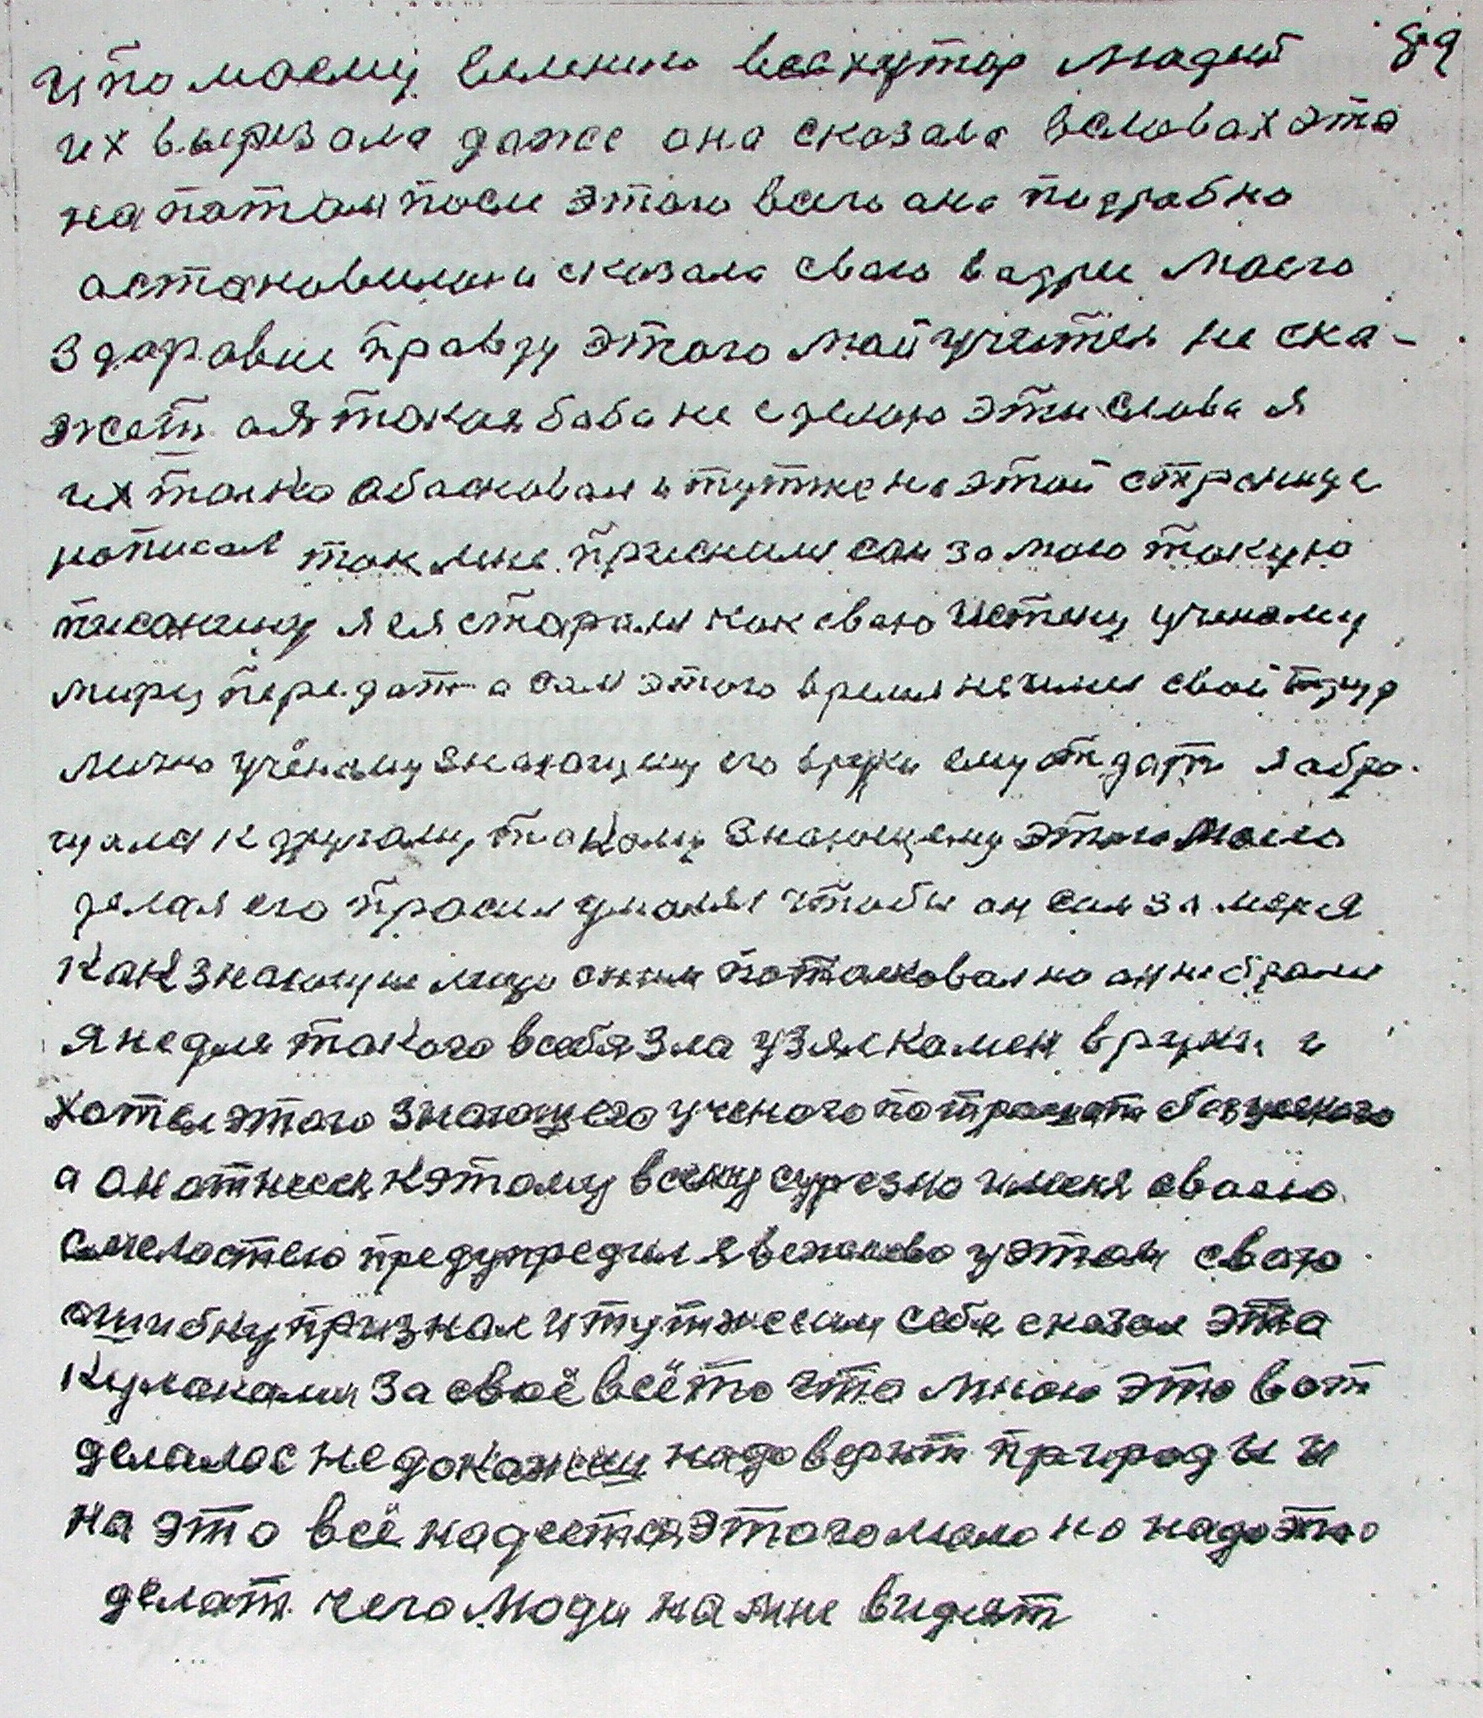 89
и по моему велению весь хутор людей
их вырезала даже она сказала в словах эта
на потом посли этого всего она подробно
астановилась и сказала сваго вадри маего
здоровие правду этого май учител не ска-
жет а я такая баба не сделаю эти слова я
их толко абасновал и тутже на этой странице
написал так мне присниля сон за маю такую
писанину я ся старался как сваю истену ученаму
миру передат а сам этого время не имел свой труд
лично учёнаму знающему его вруки ему отдат я абра-
щался к другому такому знающему этого маего
делая его прасил умолял чтобы он сам за меня
как знающие лицо сним потолковал но он не брался
я не для такого в себя зла узял камен в руки и
хотел этого знающего ученого потращат безумного
а он отнесся к этому всему сурезно именя сваею
смелостею предупредил я вежлево у этом сваю
ошибку признал и тутже сам себе сказал эта
кулаками за своё всё то что мною это вот
делалос не докажеш надо верит природы и
на это всё надеется этого мало но надо это
делат чего люди на мне видят